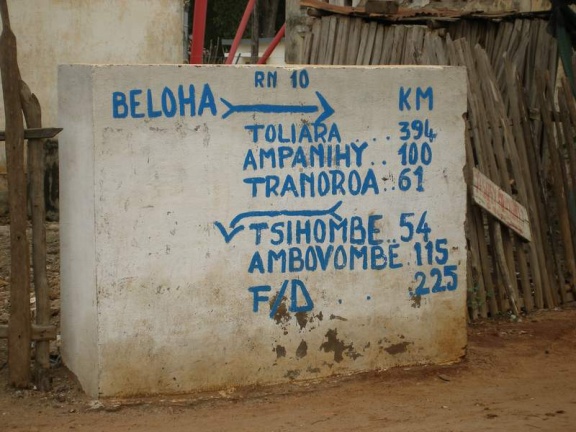 RN 10
BELOHA KM
TOLIARA ... 394
AMPANIHY.. 100
TRANOROA.. 61
TSIHOMBE.. 54
AMBOVOMBE 115
F/D . . 225